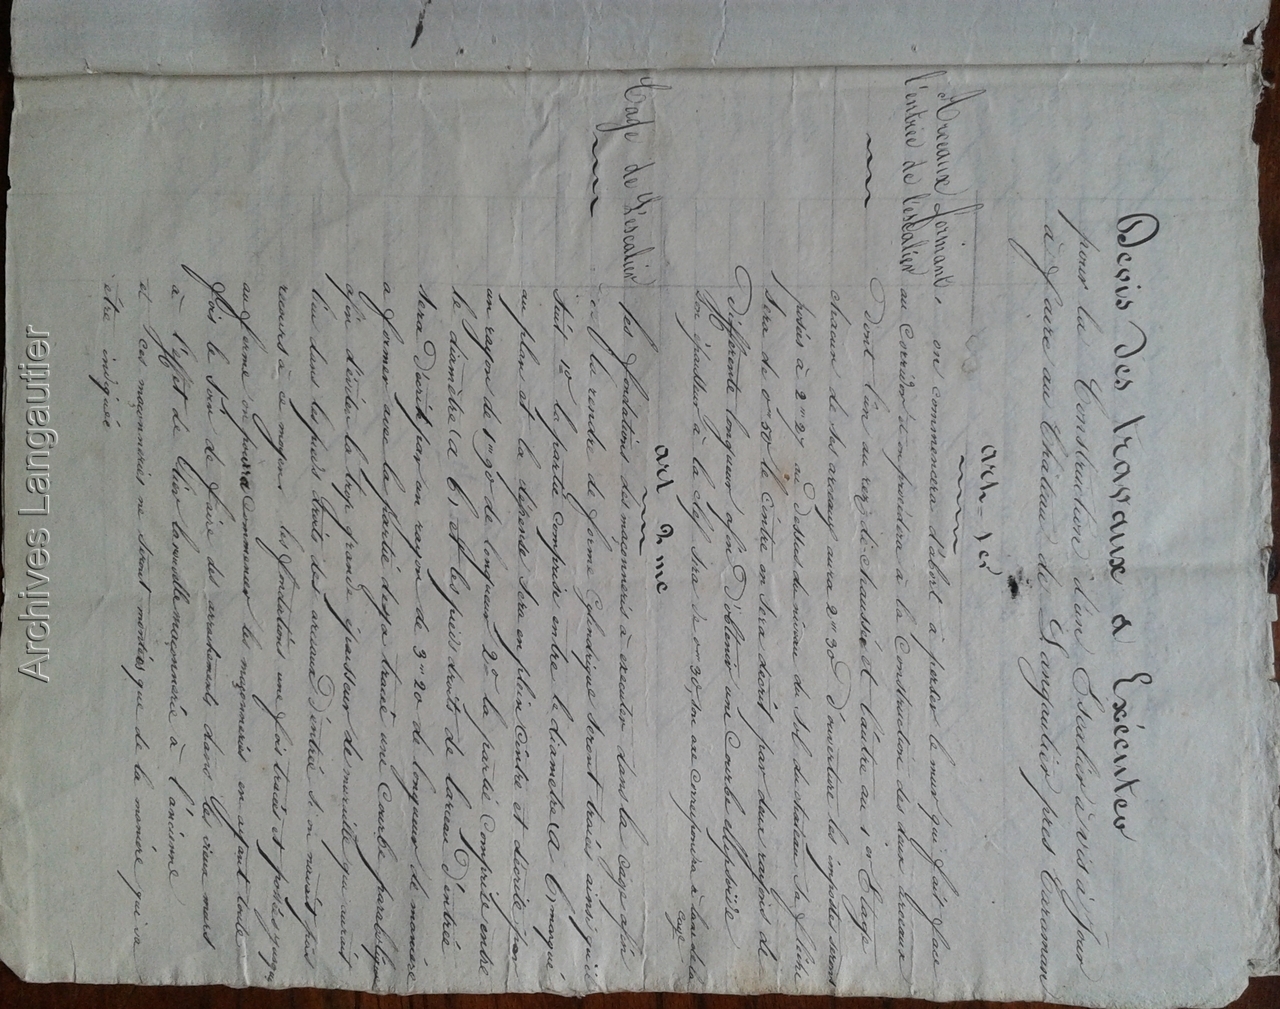 Devis des travaux à Exécuter
pour la Construction d'un Escalier à vis à jour
à faire au Château de Langautier près Caraman
art. 1er
Arceaux formant
l'entrée de l'escalier
on commencera d'abort à percer le mur qui fait face
au corridor et on procédera à la Construction des deux arceaux
Dont l'un au rez-de-chaussée et l'autre au 1er Etage
chacun de ses arceaux aura 2m 30 d'ouverture les impostes seront
posées à 2m 27 au dessus du niveau du sol du chateau sa flèche
Sera de 0m 50 le cintre en sera décrit par deux rayons de
Différente longueur afin D'obtenir une Courbe
Son épaisseur à la clef sera de 0m 35 son axe correspondra à l'axe de la
cage
art 2me
Cage de l'Escalier
les fondations des maçonneries à executer dans la cage afin
de la rendre de forme Cylindrique seront tracés ainsi qu'il
Suit 1o la partie comprise entre le diamètre (A B) marqué
au plan et la dépense sera en plein Cintre et décrite par
un rayon de 1m 90 de longueur 2o la partie comprise entre
le diamètre (A B) et les pieds droits de l'arceau d'entrée
Sera Décrit par un rayon de 3m 20 de longueur de manière
à former avec la partie deja tracée une Courbe parabolique
afin d'éviter la trop grande épaisseur de muraille qui aurait
lieu dans les pieds droits des arceaux D'entrée si n'eussit pris
recours à ce moyen. les fondations une fois tracées et posées jusqu'
au ferme on pourra commencer les maçonneries en ayant toute
fois le soin de faire des arrachements dans les vieux murs
à l'effet de lier la nouvelle maçonnerie à l'ancienne
et ces maçonneries ne seront montées que de la manière qui va
être indiquée
Archives Langautier